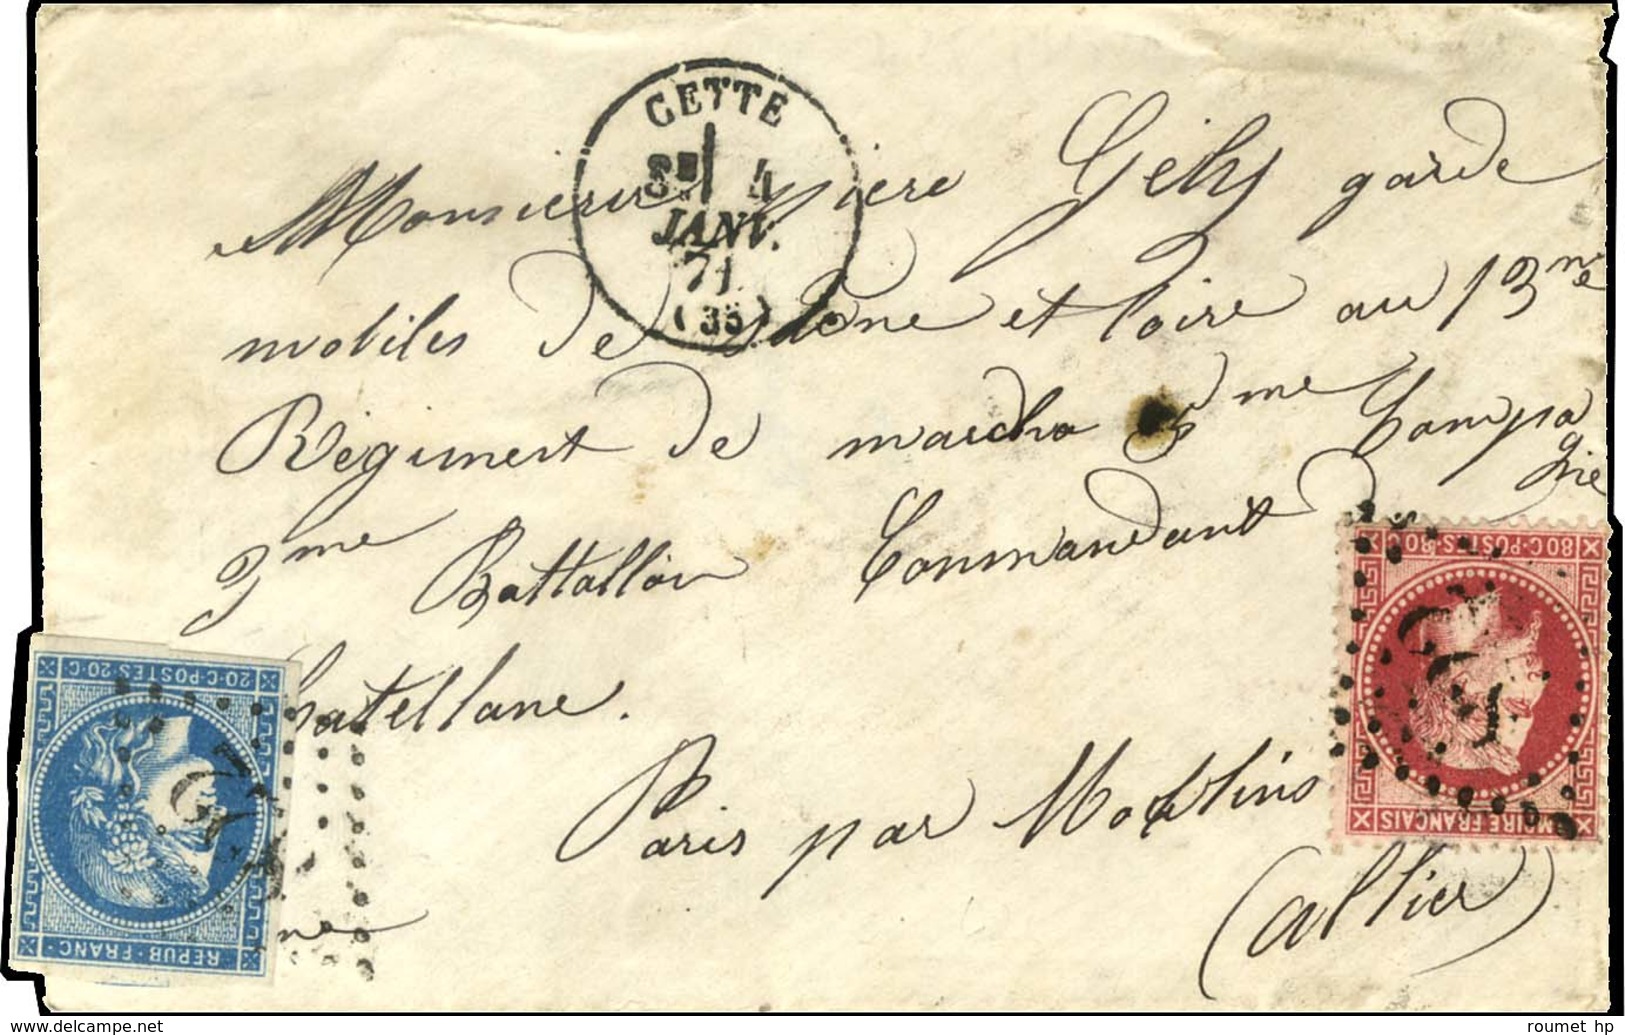 CETTE
3E 4
JANV.
71
(33)
Monsieur pierre Gély garde
mobiles de Saône et loire au 13me
Régiment de marche 5me Compa
gnie
3me Battallion Commandant
Chatellane.
Paris par Moulins
(allier)
20·C·POSTES·20·C
REPUB·FRANC·
80C·POSTES·80C
EMPIRE FRANÇAIS
www.delcampe.net
roumet hp